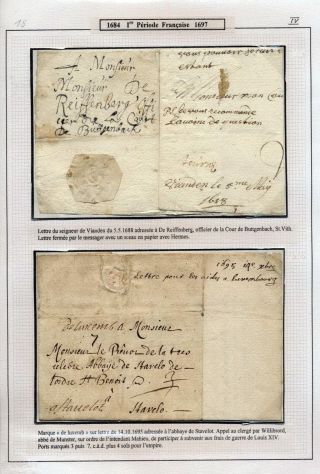 15
1684 1re Période Française 1697
IV
A Monsieur
Monsieur De
Reiffenberg
de la Court
de Butgenbach
vous pouvoir
estant
Monsieur
vous recommande
question
Vianden le 5me May
1688
Lettre du seigneur de Vianden du 5.5.1688 adressée à De Reiffenberg, officier de la Cour de Butgenbach, St.Vith.
Lettre fermée par le messager avec un sceau en papier avec Hermes.
1695 14e xbre
Lettre pour les aides a Luxembourg
de luxemb a Monsieur
7
Monsieur le Prieur de la tres
celebre Abbaye de Stavelo de
lordre St Benoit
a Stavelot Stavelo
Marque « de luxemb » sur lettre du 14.10.1695 adressée à l'abbaye de Stavelot. Appel au clergé par Willibrord,
abbé de Munster, sur ordre de l'intendent Mahieu, de participer à subvenir aux frais de guerre de Louis XIV.
Ports marqués 3 puis 7, c.à.d. plus 4 sols pour l'empire.